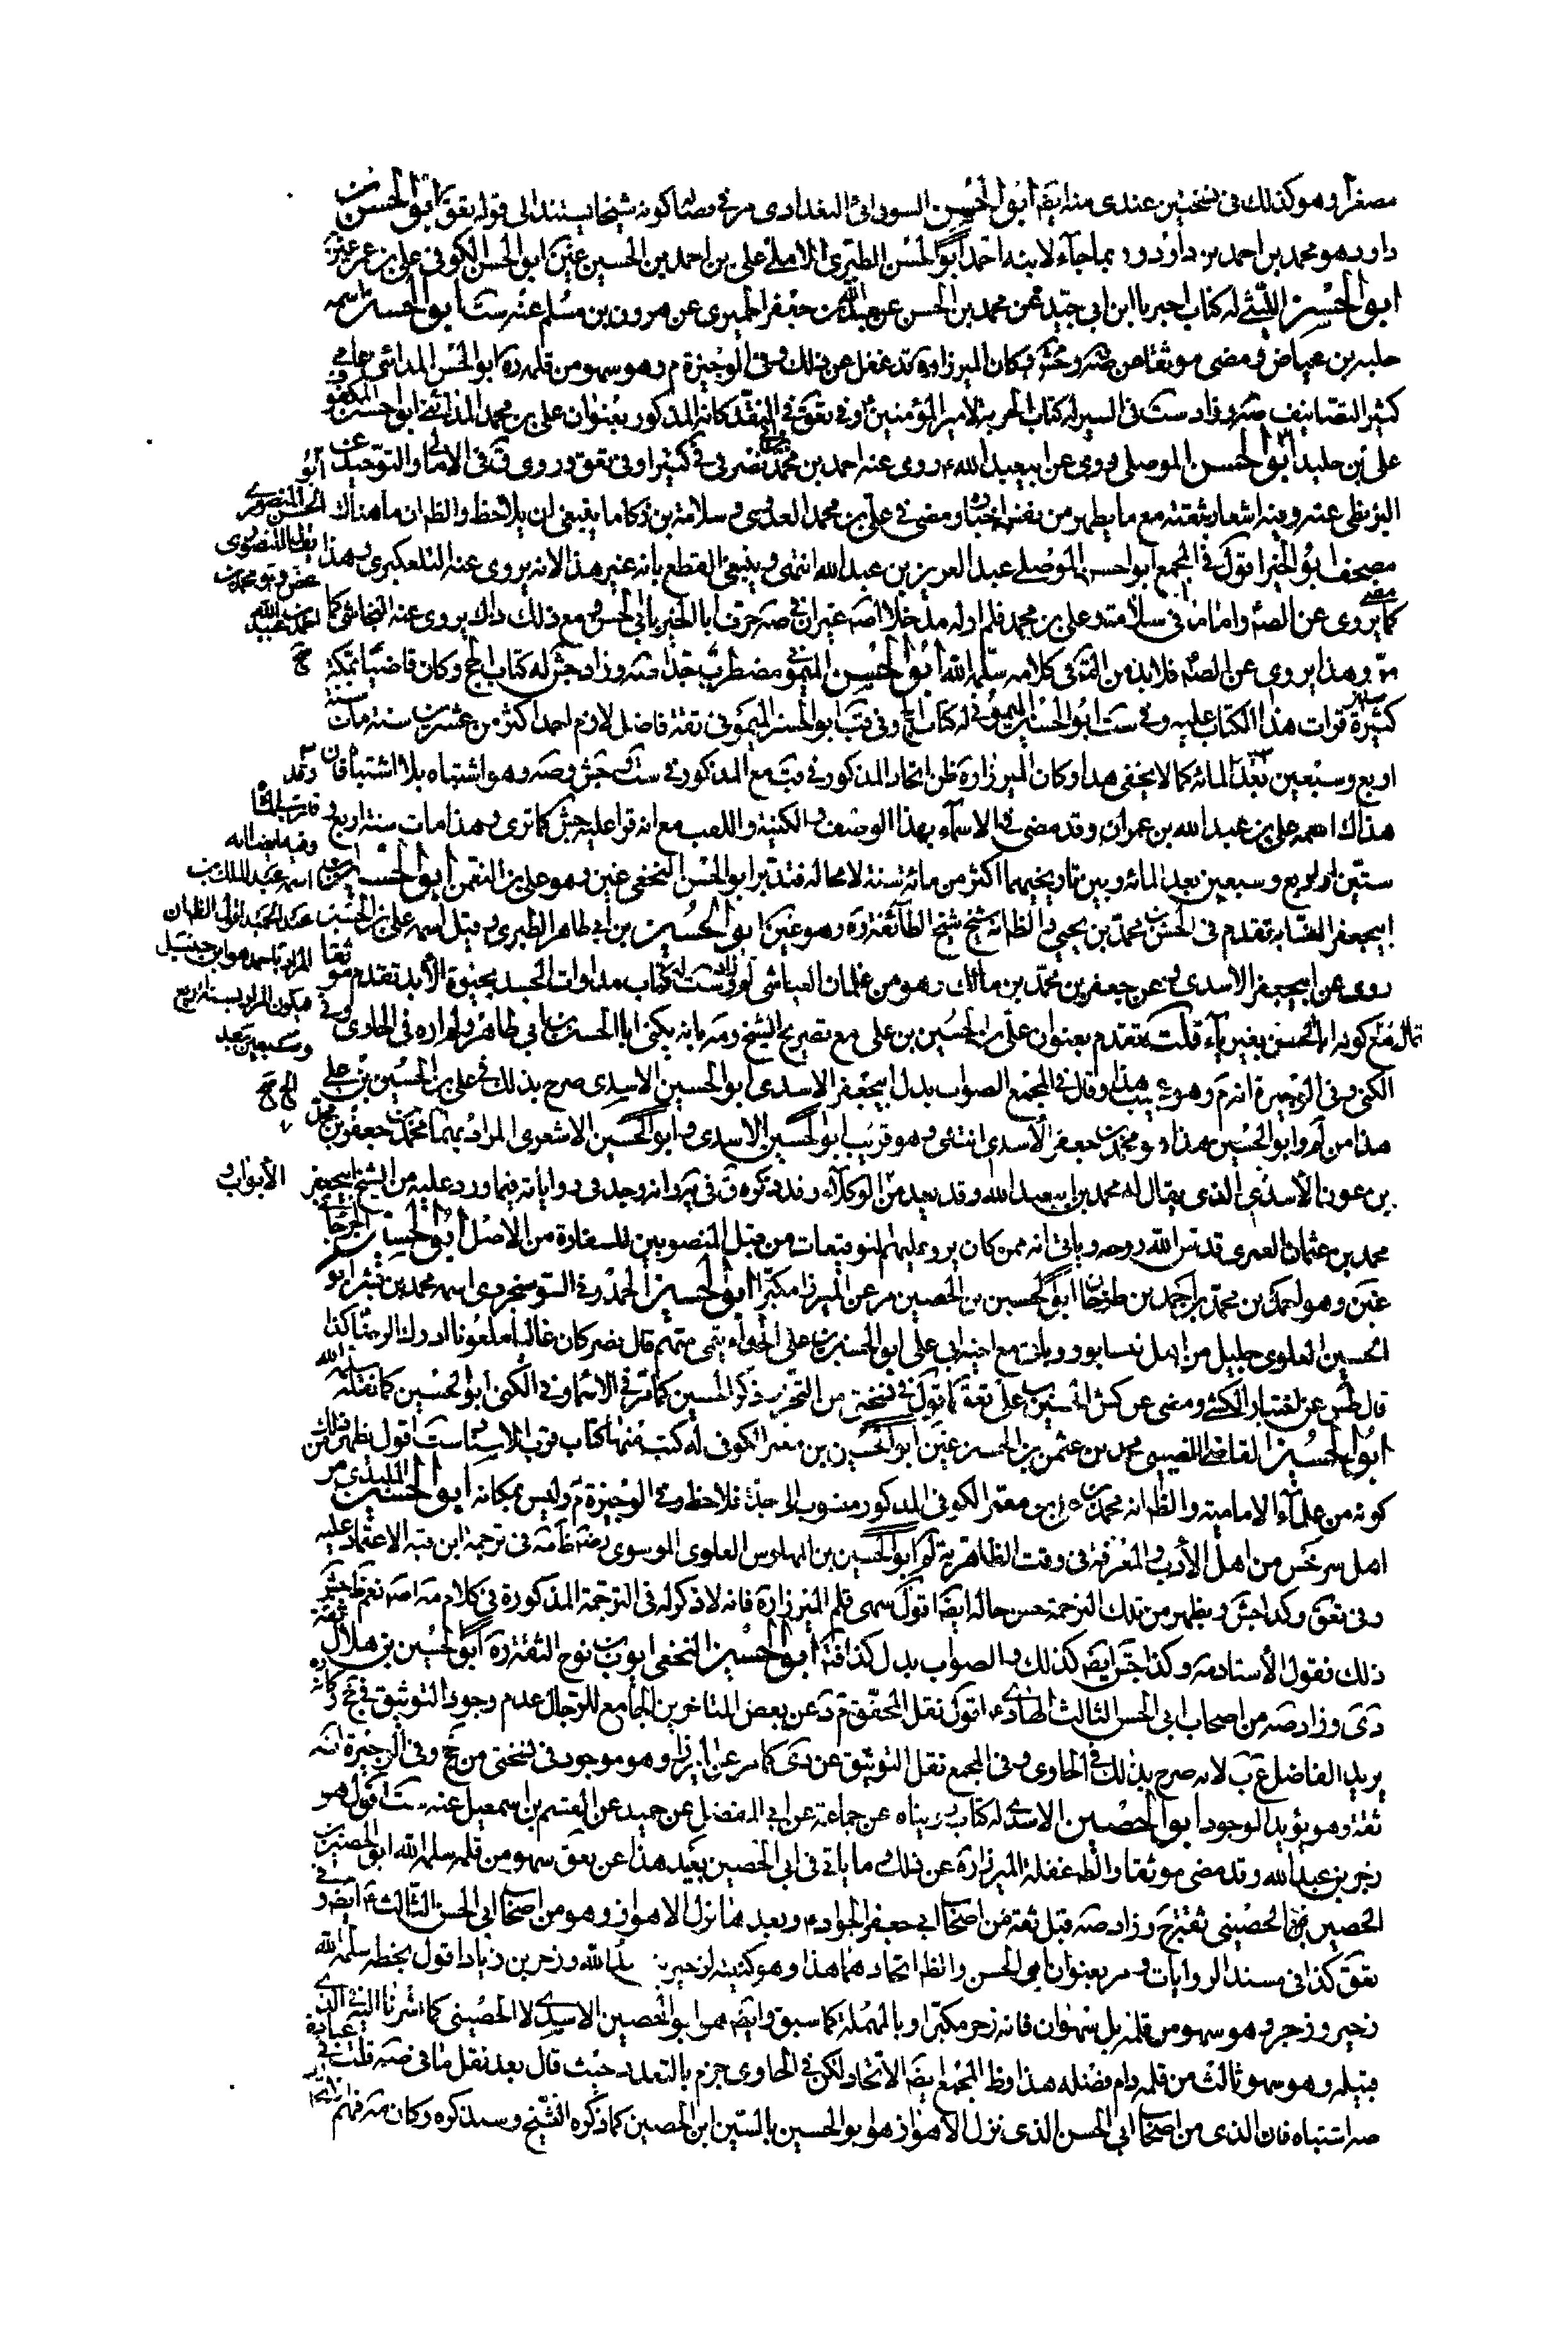 مصغرا وهو كذلك فى نسختين عندى منه ايضا ابو الحسن السورانى البغدادى مر فى فضاله كونه شيخا يستند الى قوله تعق ابو الحسن بن
داود هو محمد بن احمد بن داود د بما جاء لابنه احمد ابو الحسن الطبرى الاملى على بن احمد بن الحسين عين ابو الحسن الكوفى على بن عمر عين
ابو الحسن الليثى له كتاب اخبرنا ابن ابى جيد عن محمد بن الحسن عن عبد الله بن جعفر الحميرى عن هرون بن مسلم عنه ست ابو الحسن اسمه
حلبه بن عياض ومضى موثقا عن صه وجش وكان الميرزا ره قد غفل عن ذلك وفى الوجيزة م وهو سهو من قلمه ره ابو الحسن المدائنى عامى
كثير التصانيف صه وزاد ست فى السير له كتاب الحربة لامير المؤمنين وفى تعق فى النقد كانه المذكور بعنوان على بن محمد المدائنى ابو الحسن المكفوف
على بن حليد ابو الحسن الموصلى روى عن ابيعبد الله ء روى عنه احمد بن محمد بن ابى نصر فى فى كثيرا وفى تعق وروى ق فى الامالى والتوحيد عن
البزنطى عنه وفيه اشعار بثقته مع ما يظهر من نفس اخباره ومضى فى على بن محمد العدوى وسلامة بن ذكا ما ينبغى ان يلاحظ والظ ان ما هناك
مصحف ابو الخير اقول فى المجمع ابو الحسن الموصلى عبد العزيز بن عبد الله انتهى وينبغى القطع بانه غير هذا لانه يروى عنه التلعكبرى وهذا
كما مضى يروى عن الصه واما ما فى سلامة وعلى بن محمد فلم ار له مدخلا اصه غير ان فى صه حرف ابا الخير بابى الحسن ومع ذلك ذاك يروى عنه النجاشى كما
مر وهذا يروى عن الصه فلابد من التامل فى كلامه سلمه الله ابو الحسن الميمونى مضطرب جدا صه وزاد جش له كتاب الحج وكان قاضيا بمكة
سنين كثيرة قرات هذا الكتاب عليه وفى ست ابو الحسن الميمونى له كتاب الحج وفى قب ابو الحسن الميمونى ثقة فاضل لازم احمد اكثر من عشرين سنة مات سنة
اربع وسبعين بعد المائه كما لا يخفى هذا وكان الميرزا ره ظن اتحاد المذكور فى قب مع المذكور فى ست وجش وصه وهو اشتباه بلا اشتباه فان
هذاك اسمه على بن عبد الله بن عمران وقد مضى فى الاسماء بهذا الوصف والكنية واللقب مع انه قرا عليه جش كما ترى وهذا مات سنة اربع و
ستين او اربع وسبعين بعد المائه وبين تاريخيهما اكثر من مائة سنة لا محاله فتدبر ابو الحسن النخعى عين وهو على بن النعمن ابو الحسن بن
ابيجعفر النسابه تقدم فى الحسن بن محمد بن يحيى والظ انه شيخ شيخ الطائفة ره وهو غير ابو الحسين بن ابى طاهر الطبرى وقيل اسمه على بن الحسين ثقة
روى عن ابيجعفر الاسدى وعن جعفر بن محمد بن مالك وهو من غلمان العياشى لم وزاد ست له كتاب مداوات الجسد بحيوة الأبد تقدم موثقا
ثمال مع كونه ابا الحسن بغير ياء قلت تقدم بعنوان على بن الحسين بن على مع تصريح الشيخ وصه بانه يكنى ابا الحسين بن ابى طاهر ولم اره فى الحاوى وفى
الكنى وفى الوجيزة انه م وهو عجيب هذا وقال فى المجمع الصواب بدل ابيجعفر الاسدى ابو الحسين الاسدى صرح بذلك فى على بن الحسين بن على
هذا من لم وابو الحسين هذا هو محمد بن جعفر الاسدى انتهى وهو قريب ابو الحسين الاسدى وابو الحسين الاشعرى المراد بهما محمد بن جعفر بن محمد
بن عون الأسدى الذى يقال له محمد بن ابيعبد الله وقد يعد من الوكلاء وقد ذكره ق فى يه وانه وجد فى رواياته فيما ورد عليه من الشيخ ابيجعفر
محمد بن عثمان العمرى قدس الله روحه وياتى انه ممن كان يرد عليهم التوقيعات من قبل المنصوبين للسفارة من الاصل ابو الحسين الجرجانى
عين وهو احمد بن محمد بن احمد بن طرخان ابو الحسين بن الحصين مر عن الميرزا مكبرا ابو الحسين الحمدونى السوسنجردى اسمه محمد بن بشر ابو
الحسين العلوى جليل من اهل نيسابور وياتى مع اخيه ابى على ابو الحسين بن على الخواتيمى متهم قال نصر كان غاليا ملعونا ادرك الرضا كذا
قال طس عن اختيار الكشى ومضى عن كش الحسين بن على تعق كما اقول فى نسختى من التحرير ذكر الحسين كما مر فى الاسماء وفى الكنى ابو الحسين كما نقله سلمه الله
ابو الحسين القاضى النصيبى محمد بن عثمن بن الحسن عين ابو الحسين بن معمر الكوفى له كتب منها كتاب قرب الاسناد ست اقول يظهر من ذلك
كونه من علماء الامامية والظ انه محمد بن على بن معمر الكوفى المذكور منسوبا الى جده فلاحظ وفى الوجيزة م وليس بمكانه ابو الحسين النيلبندى مر
اهل سرخس من اهل الأدب والمعرفة فى وقت الظاهرية لم ابو الحسين بن المهلوس العلوى الموسوى رضه ظ صه فى ترجمة ابن قبه الاعتماد عليه
وفى تعق وكذا جش ويظهر من تلك الترجمة حسن حاله ايضا اقول سهى قلم الميرزا ره فانه لا ذكر له فى الترجمة المذكورة فى كلام صه اصه نعم فى جش
ذلك فقول الأستاد صه وكذا جش ايضا كذلك والصواب بدل كذا فقه ابو الحسين النخعى ايوب بن نوح الثقة ره ابو الحسين بن هلال ثقة
دى وزاد صه من اصحاب ابى الحسن الثالث الهادى ء اقول نقل المحقق م د عن بعض المتاخرين الجامع للرجال عدم وجود التوثيق فى جخ وكانه
يريد الفاضل ع ب لانه صرح بذلك فى الحاوى وفى المجمع نقل التوثيق عن دى كما مر عن الميرزا وهو موجود فى نسختى من جخ وفى الوجيزة انه
ثقة وهو يؤيد الوجود ابو الحصين الاسدى له كتاب رويناه عن جماعة عن ابى المفضل عن حميد عن القسم بن اسمعيل عنه ست اقول هو
زحر بن عبد الله وقد مضى موثقا والظ غفلة الميرزا ره عن ذلك وما ياتى فى ابى الحصين بعيد هذا عن تعق سهو من قلمه سلمه الله ابو الحصين بن
الحصين الحصينى ثقة ج وزاد صه قبل ثقة من اصحاب ابى جعفر الجواد ء وبعدها نزل الاهواز وهو من اصحاب ابى الحسن الثالث ء ايضا وفى
تعق كذا فى مسند الروايات ومر بعنوان ابى الحسن والظ اتحادهما هذا وهو كنية لزحير بن عبد الله وزحر بن زياد اقول بخطه سلمه الله
زحير وزجر وهو سهو من قلمه بل سهوان فانه زحر مكبرا وبالمهملة كما سبق وايضا هو ابو الحصين الاسدى لا الحصينى كما اشرنا اليه فى الذى
قبيله وهو سهو ثالث من قلمه دام فضله هذا وظ المجمع ايضا الاتحاد لكن فى الحاوى جزم بالتعدد حيث قال بعد نقل ما فى صه قلت فى عبارة
صه اشتباه فان الذى من اصحاب ابى الحسن الذى نزل الاهواز هو ابو الحسين بالسين ابن الحصين كما ذكره الشيخ وسيذكره وكان صه فهم
ابو
الحسن المنصورى
عيسى وهو محمد بن
احمد بن عبيد الله
وقد
وفيه ايضا انه
اسمه عبد الملك بن
عبد الحميد اقول الظ ان
المراد باحمد هو ابن حنبل
فيكون المراد بسنة اربع
وسبعين بعد
الأبواب و